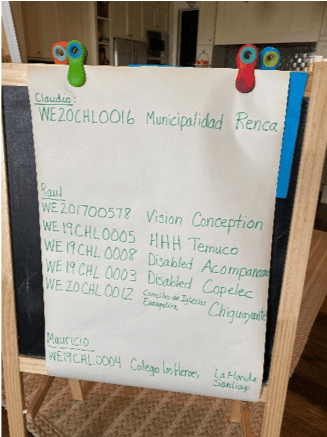 Claudio:
WE20CHL0016 Municipalidad Renca
Raul
WE201700578 Vision Conception
WE19CHL0005 HHH Temuco
WE19CHL0008 Disabled
WE19CHL0003 Disabled Copelec
WE20CHL0012 Concilio de Iglesias Evangelica Chiguayante
Mauricio
WE19CHL0004 Colegio los Heroes La Florida Santiago